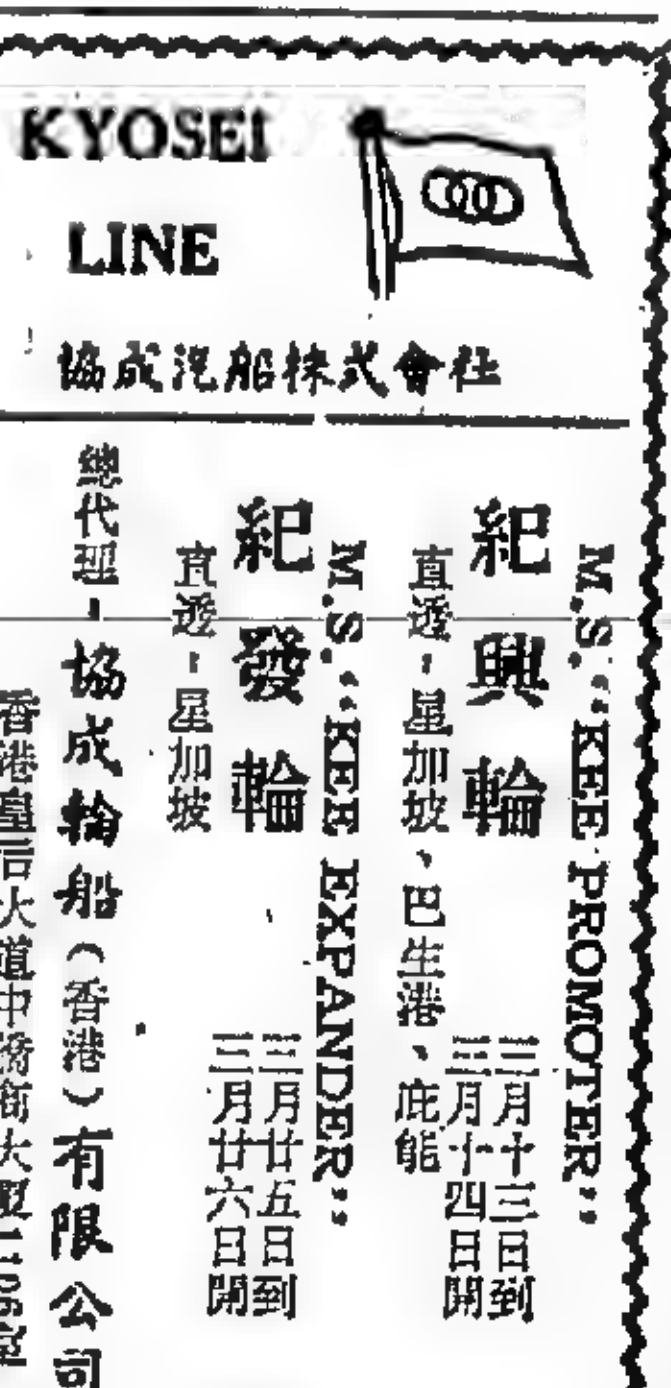 KYOSEI
LINE
協成汽船株式會社
M.S. “KEE PROMOTER”
紀興輪
三月十三日到
三月十四日開
直透-星加坡、巴生港、庇能
M.S. “KEE EXPANDER”
紀發輪
三月廿五日到
三月廿六日開
直透-星加坡
總代理-協成輪船(香港)有限公司
香港皇后大道中